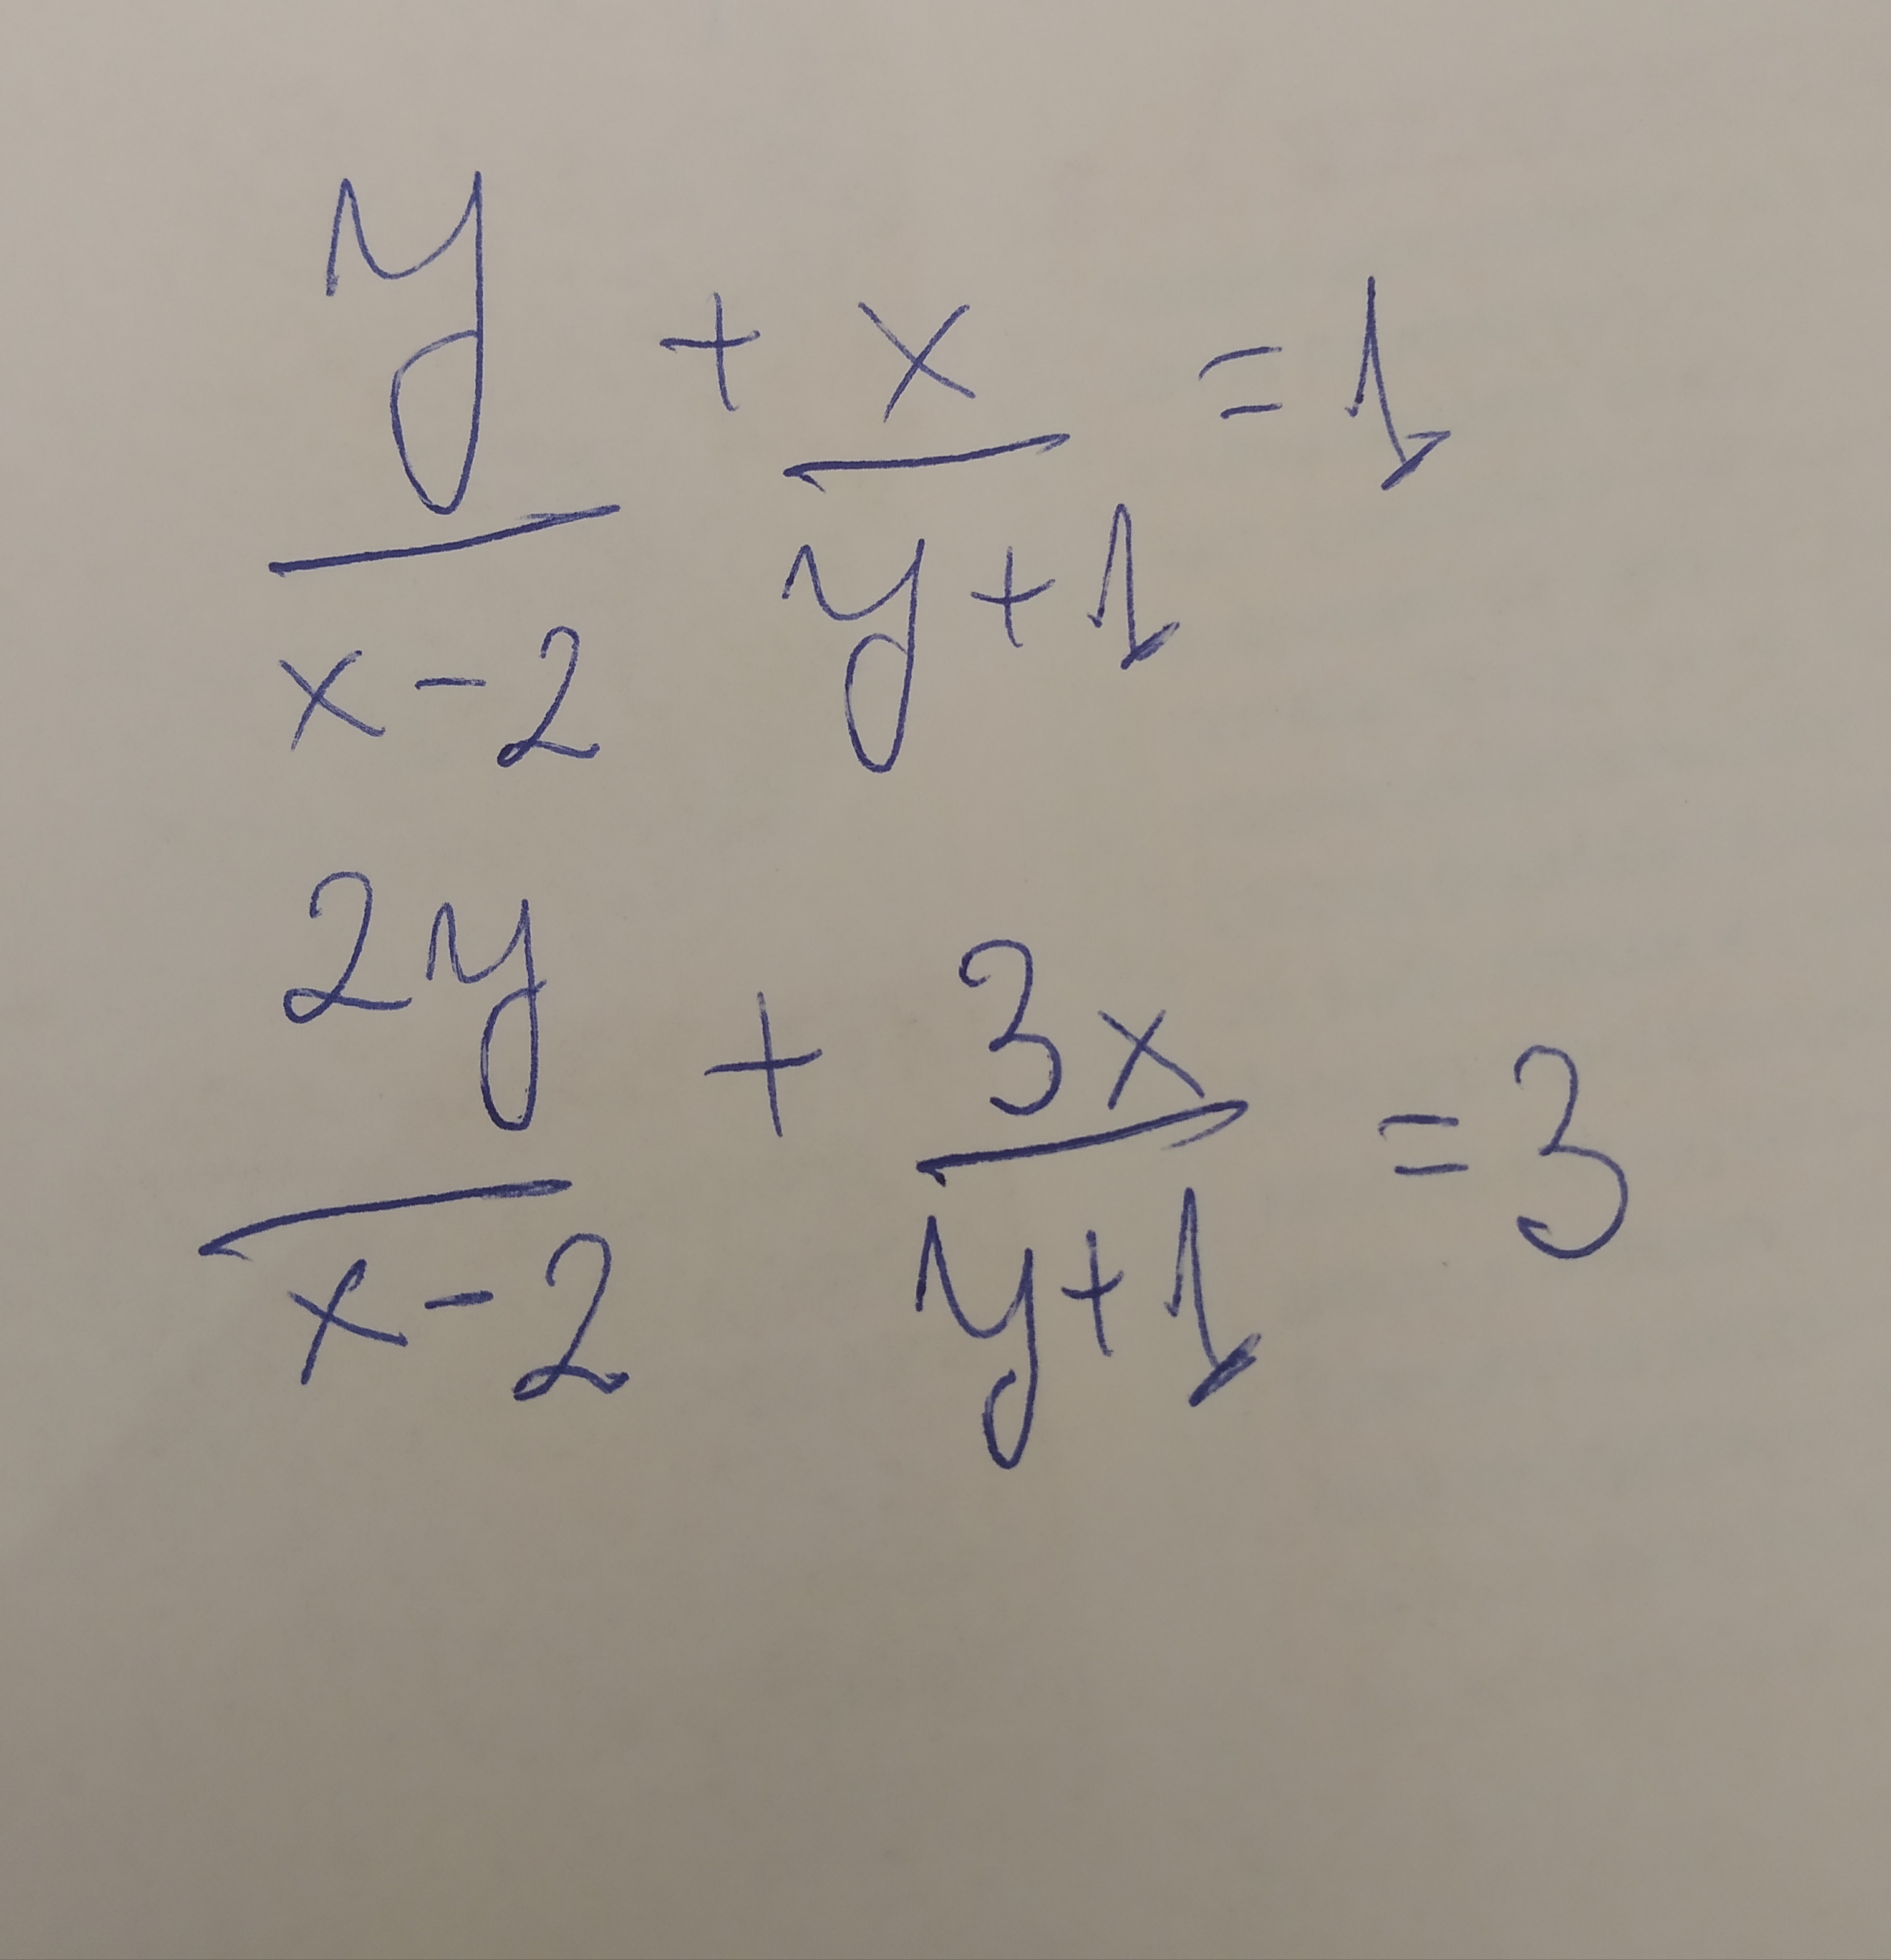 y/(x-2) + x/(y+1) = 1
2y/(x-2) + 3x/(y+1) = 3